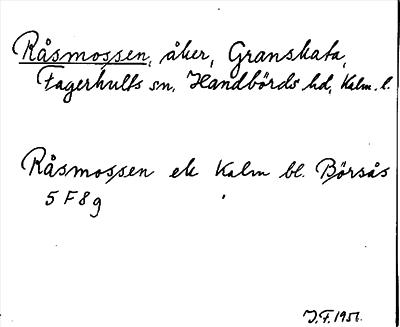 Råsmossen, åker, Granskata,
Fagerhults sn, Handbörds hd, Kalm. l.
Råsmossen ek Kalm bl. Börsås
5 F 8 g
J.F. 1951.